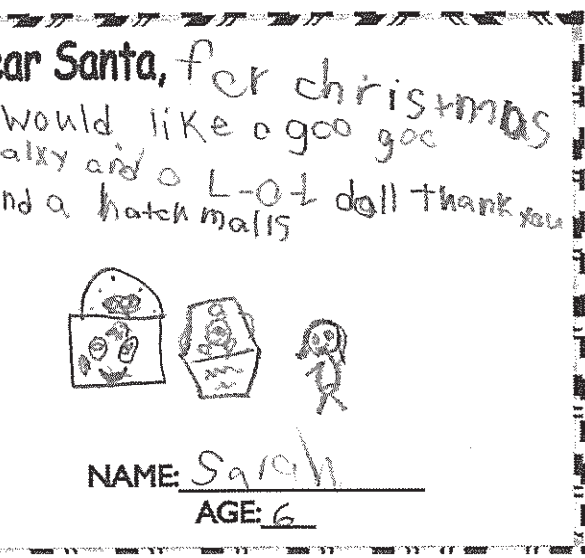 ar Santa, for christmas
would like a goo goo
alxy and a L-O-L doll thank you
nd a hatch malls
NAME: Sarah
AGE: 6